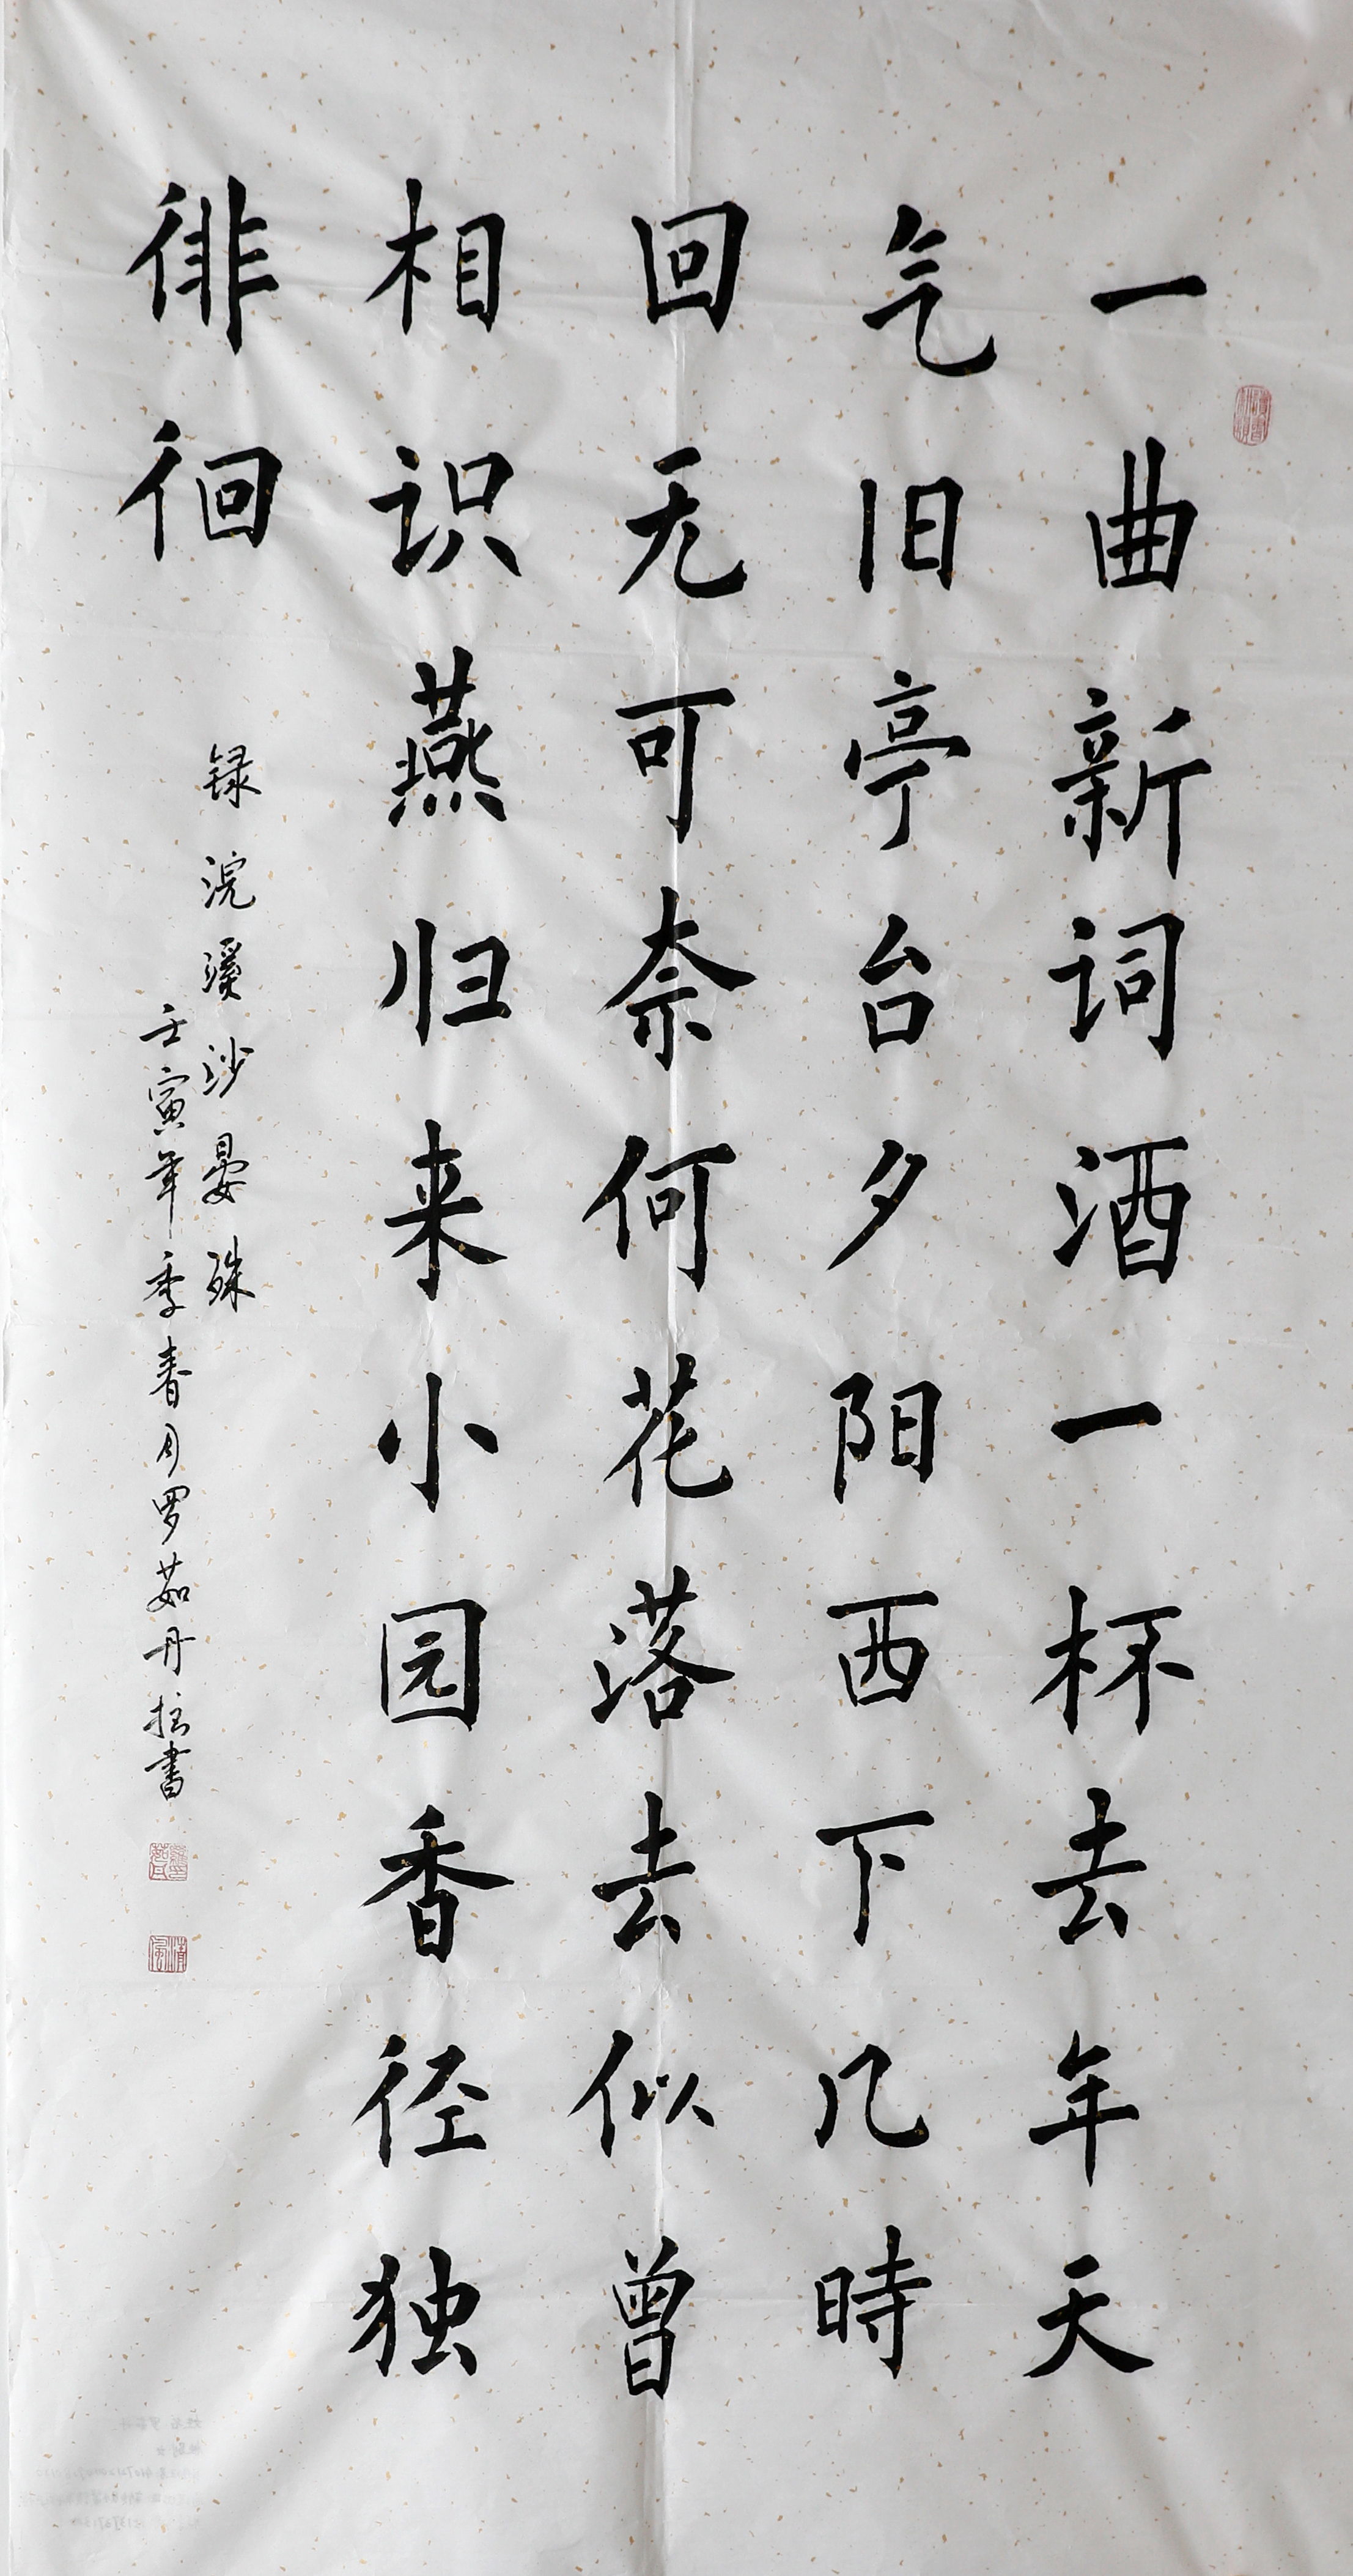 一曲新词酒一杯去年天
气旧亭台夕阳西下几時
回无可奈何花落去似曾
相识燕归来小园香径独
徘徊
録浣溪沙晏殊
壬寅年季春月罗茹丹拙書